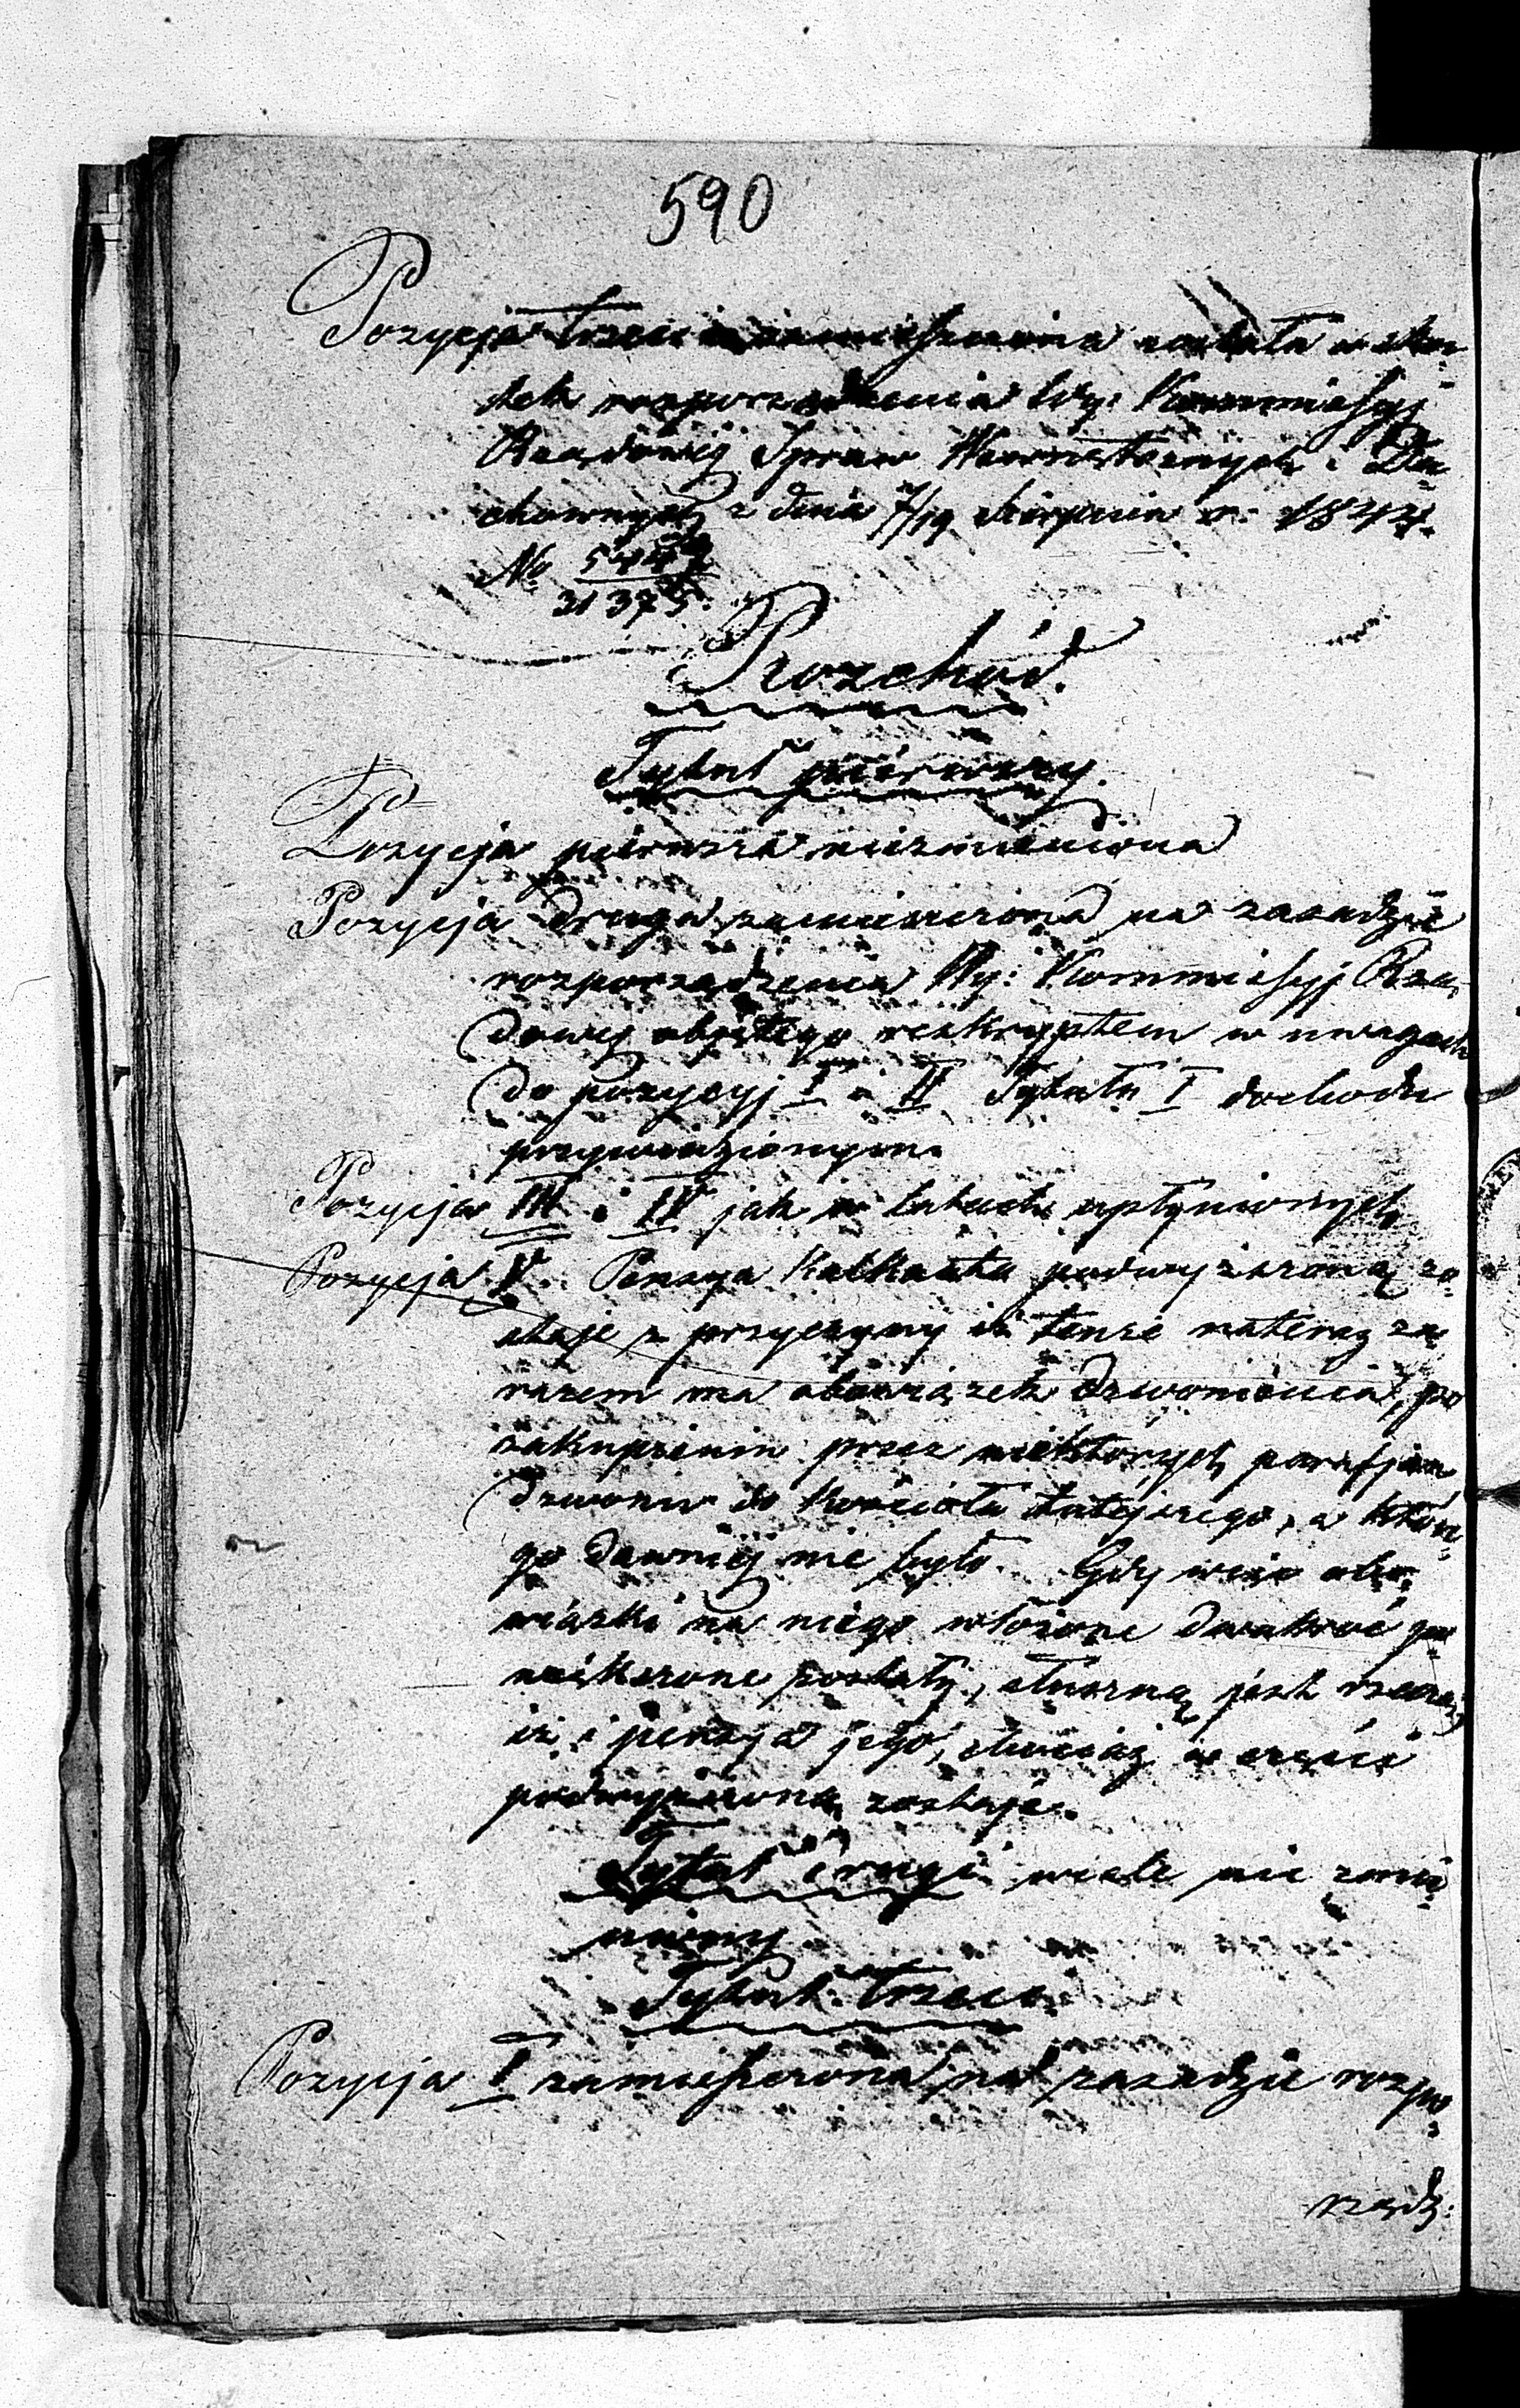 590
Pozycja trzecia zamieszczona została w sku=
tek rozporządzenia Wy: Kommissyj
Rządowéj Spraw Wewnętrznych i Du
chownych z dnia 7/19 Sierpnia r: 1844.
No 
31375.
Rozchód.
Tytuł piérwszy.
Pozycja piérwsza niezmieniona
Pozycja druga zamieszczona na zasadzie
rozporządzenia Wy: Kommissyj Rzą=
dowéj objętego reskryptem w uwagach
do pozycyj I i II Tytułu I dochodu
przywiedzionym.
Pozycja III i IV jak w latach upłynionych
Pozycja V. Pensya Kalkanta podwyższoną zo=
staje z przyczyny iż tenże nateraz za
razem ma obowiązek dzwonienia, po
zakupieniu przez niektórych parafjan
dzwonu do Kościoła tutejszego, a któré=
go dawniéj nie było. Gdy więc obo=
wiązki na niego włożone dwakroć po=
większone zostały, słuszną jest rzeczą
iż i pensja jego, chociaż w części
podwyższoną zostaje.
Tytuł drugi wcale nie zmié
niony
Tytuł trzeci.
Pozycja I zamieszczona na zasadzie rozpo=
rządz: